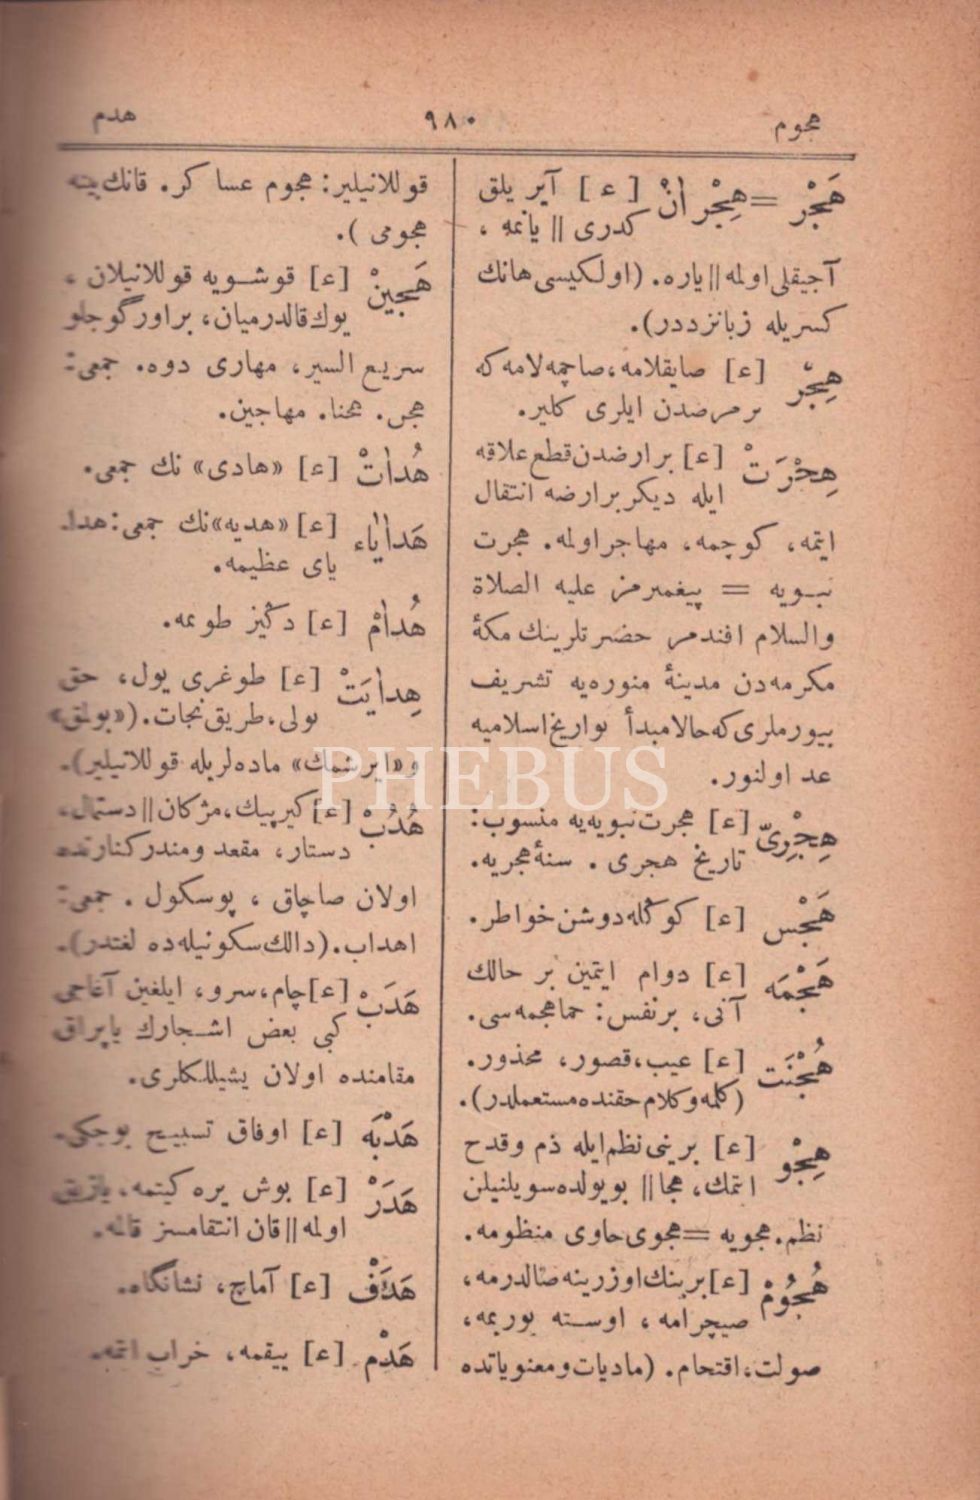 هجوم
٩٨٠
هدم
هَجْر = هِجْرانْ [ع] آیریلق
كدری || یانمه ،
آجیقلی اولمه || یاره. (اولكیسی هانك
كسریله زبانزددر).
هِجْر [ع] صایقلامه، صاچمه‌لامه كه
برمرضدن ایلری كلیر.
هِجْرَتْ [ع] برارضدن قطع علاقه
ایله دیكر برارضه انتقال
ایتمه، كوچمه، مهاجر اولمه. هجرت
نبویه = پیغمبرمز علیه الصلاة
والسلام افندمز حضرتلرینك مكۀ
مكرمه‌دن مدینۀ منوره‌یه تشریف
بیورملری كه حالا مبدأ تواریخ اسلامیه
عد اولنور.
هِجْرِیّ [ع] هجرت نبویه‌یه منسوب:
تاریخ هجری . سنۀ هجریه.
هَجْس [ع] كوكله دوشن خواطر.
هَجْمَه [ع] دوام ایتمین بر حالك
آنی، برنفس: حما هجمه‌سی.
هُجْنَت [ع] عیب، قصور، محذور.
(كلمه وكلام حقنده مستعملدر).
هِجْو [ع] برینی نظم ایله ذم وقدح
ایتمك، هجا || بویولده سویلنیلن
نظم. هجویه = هجوی حاوی منظومه.
هُجُومْ [ع] برینك اوزرینه صالدرمه،
صیچرامه، اوسته یوریمه،
صولت، اقتحام. (مادیات ومعنویاتده
قوللانیلیر: هجوم عساكر. قانك بیتنه
هجومی ).
هَجینْ [ع] قوشویه قوللانیلان ،
یوك قالدرمیان، براوركوجلو
سریع السیر، مهاری دوه. جمعی:
هجن. هجنا. مهاجین.
هُداتْ [ع] «هادی» نك جمعی.
هَدایاء [ع] «هدیه» نك جمعی: هدا.
یای عظیمه.
هُدامْ [ع] دكز طوتمه.
هِدایَتْ [ع] طوغری یول، حق
یولی، طریق نجات. («بولمق»
و «ایرشمك» ماده‌لریله قوللانیلیر).
هُدُبْ [ع] كیرپیك، مژكان || دستمال،
دستار، مقعد ومندر كنارنده
اولان صاچاق ، پوسكول . جمعی:
اهداب. (دالك سكونیله ده لغتدر).
هَدَبْ [ع] چام، سرو، ایلغین آغاجی
كبی بعض اشجارك یاپراق
مقامنده اولان یشیللكلری.
هَدْبَه [ع] اوفاق تسبیح بوجكی.
هَدَرْ [ع] بوش یره كیتمه، یازیق
اولمه || قان انتقامسز قالمه.
هَدَفْ [ع] آماج، نشانكاه.
هَدْم [ع] ییقمه، خراب ایتمه.
PHEBUS